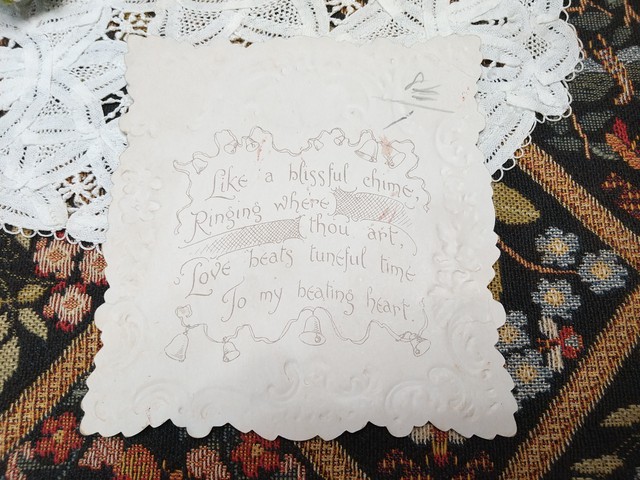 Like a blissful chime,
Ringing where
thou art,
Love beats tuneful time
To my beating heart.